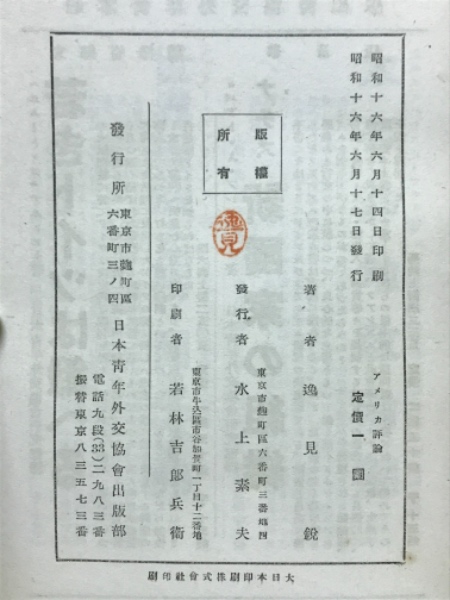 昭和十六年六月十四日印刷
昭和十六年六月十七日發行
アメリカ評論
定價一圓
版權
所有
逸見
著者 逸見銳
東京市麴町區六番町三番地四
發行者 水上素夫
東京市牛込區市谷加賀町一丁目十二番地
印刷者 若林吉郎兵衛
發行所
東京市麴町區
六番町三ノ四
日本靑年外交協會出版部
電話九段(33)二九八三番
振替東京八三五七三番
大日本印刷株式會社印刷